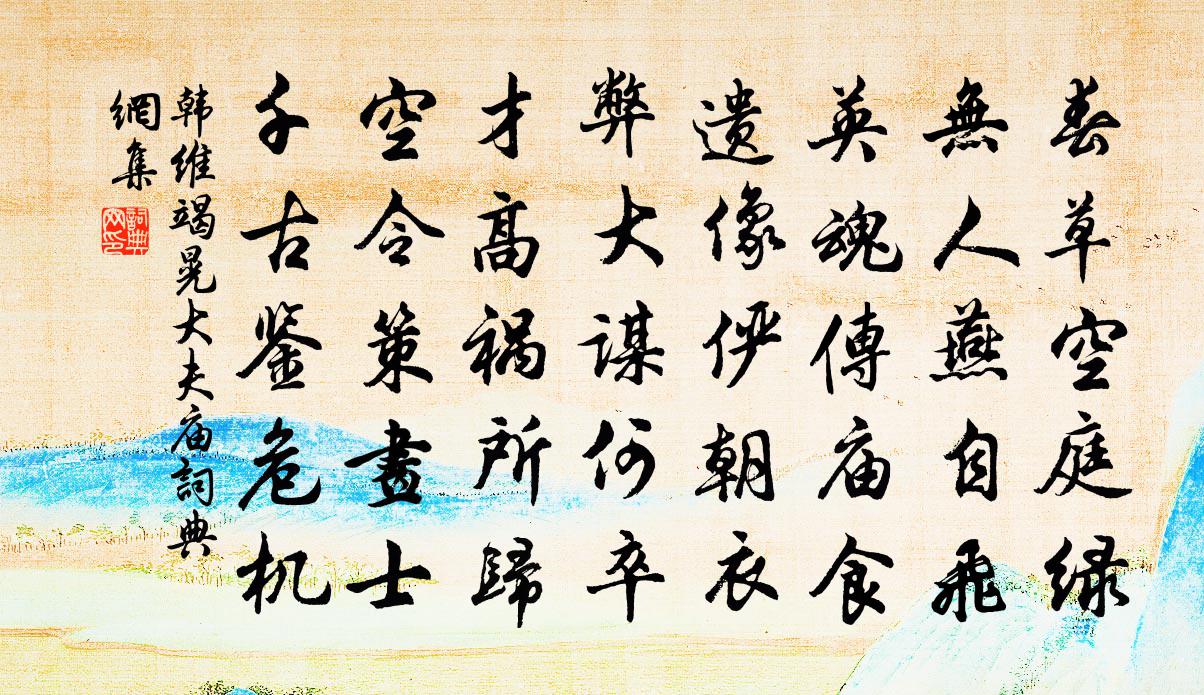 春草空庭绿
無人燕自飛
英魂傳庙食
遗像俨朝衣
弊大謀何卒
才高祸所歸
空令策畫士
千古鉴危机
韩维竭晃大夫庙詞典
網集
詞典
网印